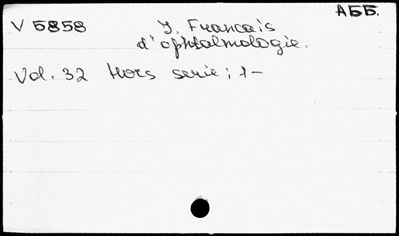 АББ.
V 5858
J. Francais
d'ophtalmologie.
Vol. 32 Hors serie; 1-